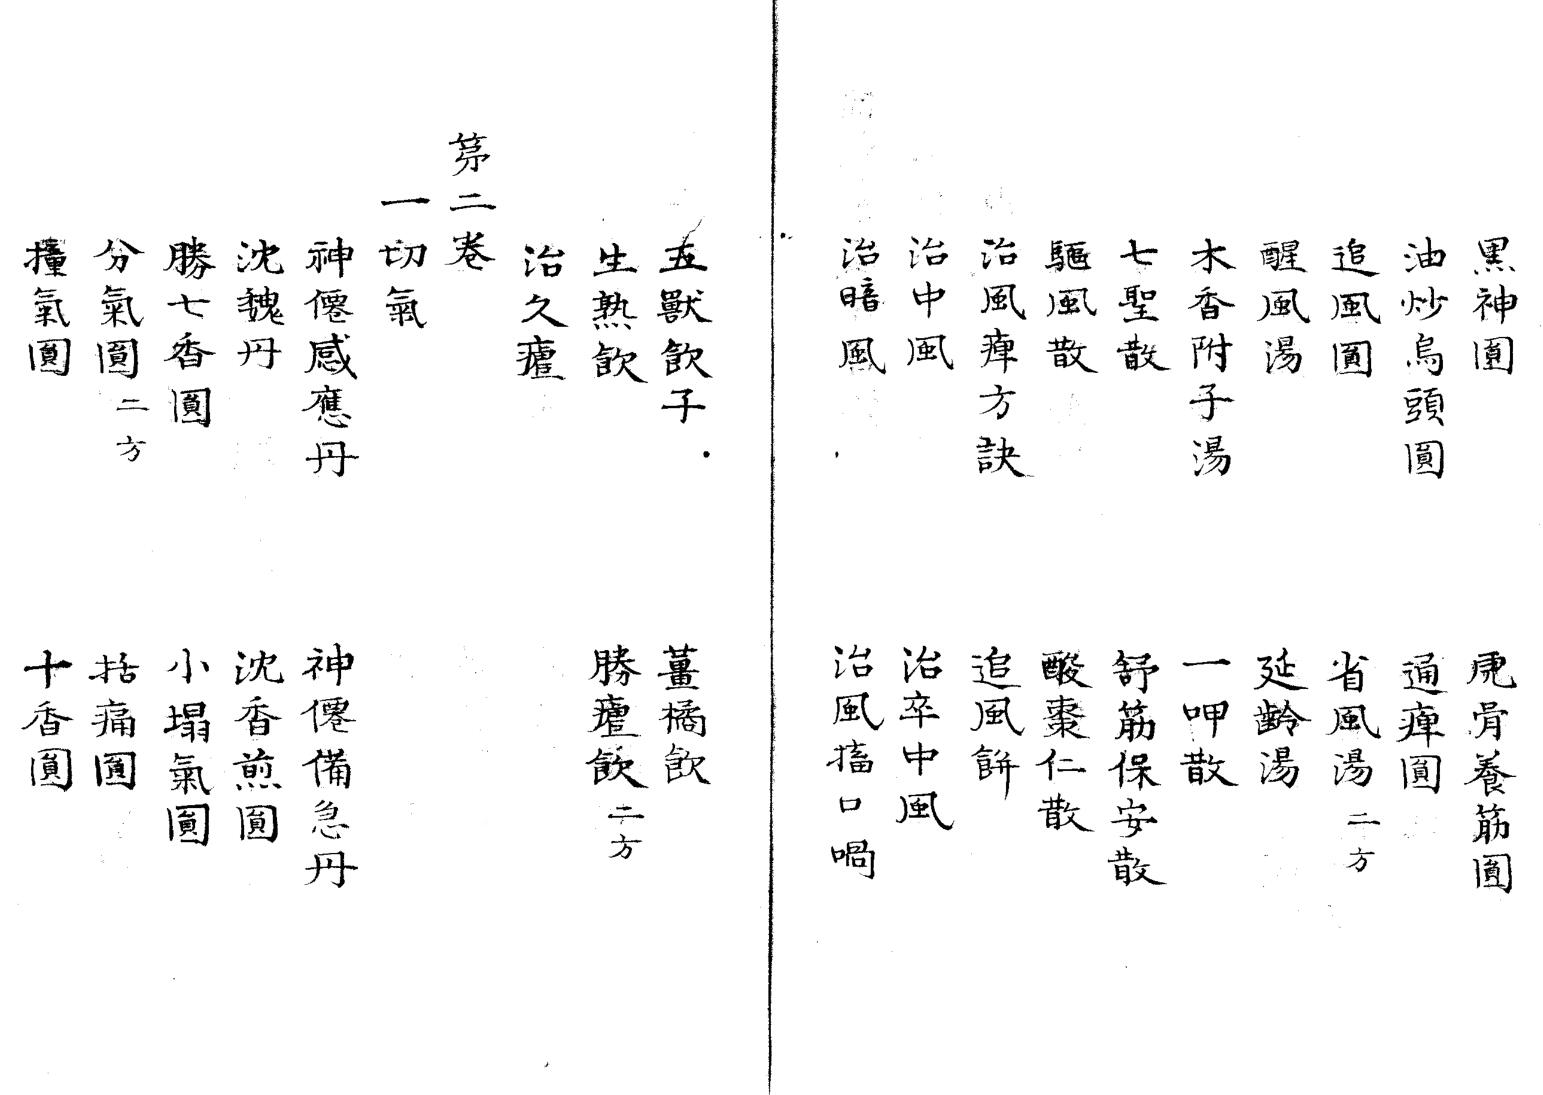 黒神圓　虎骨養筋圓
油炒烏頭圓　通痺圓
追風圓　省風湯二方
醒風湯　延齡湯
木香附子湯　一呷散
七聖散　舒筋保安散
驅風散　酸棗仁散
治風痺方訣　追風餅
治中風　治卒中風
治暗風　治風搐口喎
五獸飲子　薑橘飲
生熟飲　勝瘧飲二方
治久瘧
第二卷
一切氣
神僊感應丹　神僊備急丹
沈魏丹　沈香煎圓
勝七香圓　小塌氣圓
分氣圓二方　括痛圓
撞氣圓　十香圓